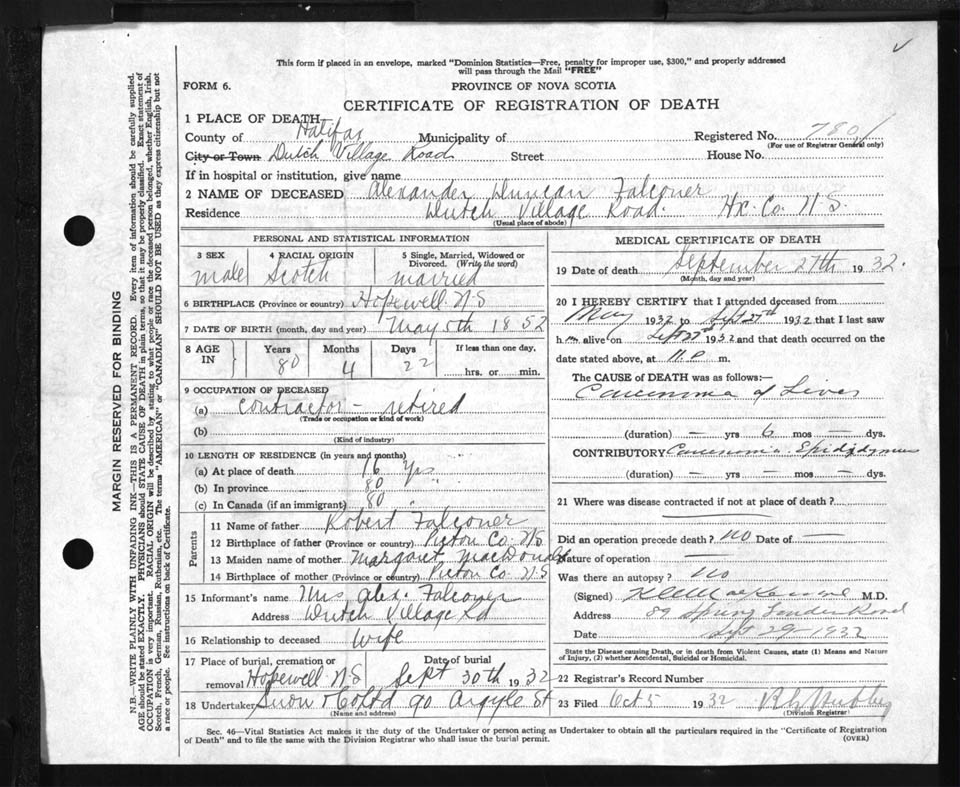 This form if placed in an envelope, marked "Dominion Statistics—Free, penalty for improper use, $300," and properly addressed
will pass through the Mail "FREE"
FORM 6.
PROVINCE OF NOVA SCOTIA
CERTIFICATE OF REGISTRATION OF DEATH
1 PLACE OF DEATH
County of Halifax Municipality of
Registered No. 7801
(For use of Registrar General only)
City or Town Dutch Village Road Street House No.
If in hospital or institution, give name
2 NAME OF DECEASED Alexander Duncan Falconer
Residence Dutch Village Road. Hx. Co. N.S.
(Usual place of abode)
PERSONAL AND STATISTICAL INFORMATION
3 SEX male
4 RACIAL ORIGIN Scotch
5 Single, Married, Widowed or Divorced. (Write the word) married
6 BIRTHPLACE (Province or country) Hopewell N.S
7 DATE OF BIRTH (month, day and year) May 5th 1852
8 AGE IN Years 80 Months 4 Days 22 If less than one day, hrs. or min.
9 OCCUPATION OF DECEASED
(a) contractor - retired
(Trade or occupation or kind of work)
(b)
(Kind of industry)
10 LENGTH OF RESIDENCE (in years and months)
(a) At place of death 16 yrs
(b) In province 80 "
(c) In Canada (if an immigrant) 80 "
Parents
11 Name of father Robert Falconer
12 Birthplace of father (Province or country) Pictou Co. N.S
13 Maiden name of mother Margaret MacDonald
14 Birthplace of mother (Province or country) Pictou Co. N.S
15 Informant's name Mrs Alex. Falconer
Address Dutch Village Rd
16 Relationship to deceased Wife
17 Place of burial, cremation or removal Hopewell N.S Date of burial Sept 30th 1932
18 Undertaker Snow & Co Ltd 90 Argyle St
(Name and address)
MEDICAL CERTIFICATE OF DEATH
19 Date of death September 27th 1932.
(Month, day and year)
20 I HEREBY CERTIFY that I attended deceased from
May 1932 to Sept 27th 1932 that I last saw
h im alive on Sept 27th 1932 and that death occurred on the
date stated above, at 11. P m.
The CAUSE of DEATH was as follows:—
Carcinoma of Liver
(duration) — yrs 6 mos — dys.
CONTRIBUTORY Carcinoma Epididymus
(duration) — yrs — mos — dys.
21 Where was disease contracted if not at place of death?
Did an operation precede death? No Date of —
Nature of operation —
Was there an autopsy? No
(Signed) MacKenzie M.D.
Address 89 Spring Garden Road
Date Sept 29 - 1932
State the Disease causing Death, or in death from Violent Causes, state (1) Means and Nature
of Injury, (2) whether Accidental, Suicidal or Homicidal.
22 Registrar's Record Number
23 Filed Oct 5 1932
(Division Registrar)
Sec. 46—Vital Statistics Act makes it the duty of the Undertaker or person acting as Undertaker to obtain all the particulars required in the "Certificate of Registration
of Death" and to file the same with the Division Registrar who shall issue the burial permit.
(OVER)
MARGIN RESERVED FOR BINDING
N.B.—WRITE PLAINLY WITH UNFADING INK—THIS IS A PERMANENT RECORD. Every item of information should be carefully supplied.
AGE should be stated EXACTLY. PHYSICIANS should STATE CAUSE OF DEATH in plain terms, so that it may be properly classified. Exact statement of
OCCUPATION is very important. RACIAL ORIGIN will be described by stating to what people or race the deceased person belonged, whether English, Irish,
Scotch, French, German, Russian, Ruthenian, etc. The terms "AMERICAN" or "CANADIAN" SHOULD NOT BE USED as they express citizenship but not
a race or people. See instructions on back of Certificate.